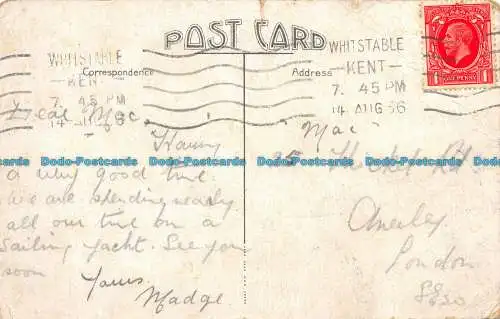 POST CARD
WHITSTABLE
KENT
7. 45 PM
14 AUG 36
Correspondence
Dear Mac.
Having
a very good time.
We are spending nearly
all our time on a
Sailing yacht. See you
soon
Yours
Madge.
WHITSTABLE
KENT
7. 45 PM
14 AUG 36
Address
"Mac"
Anerley
London
S.E.20
ONE PENNY
Dodo-Postcards Dodo-Postcards Dodo-Postcards Dodo-Postcards
Dodo-Postcards Dodo-Postcards Dodo-Postcards Dodo-Postcards